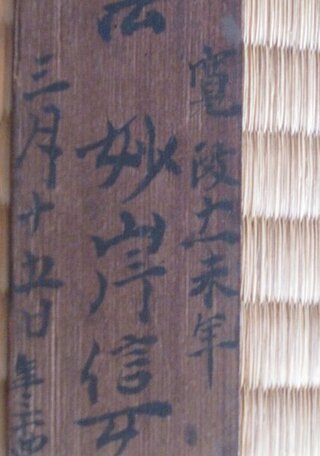 寛政十一未年
妙岸信女
三月十五日 年